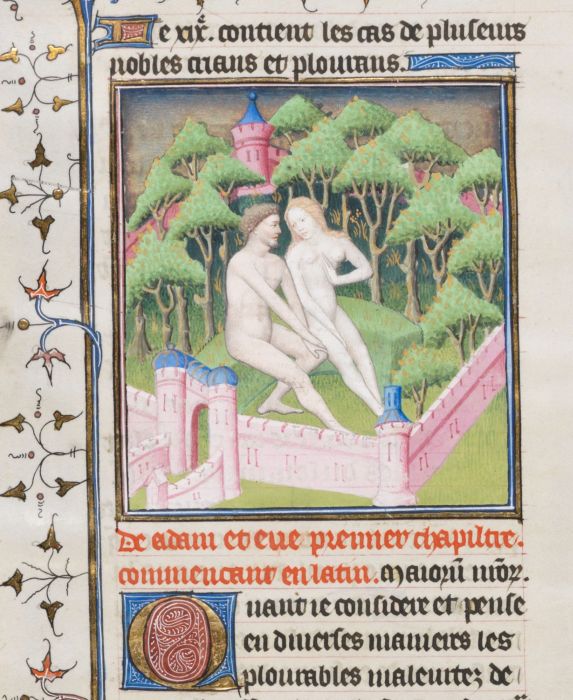 Le xixe. contient les cas de pluseurs
nobles crians et plourans.
De adam et eue premier chapiltre.
commencant en latin. Maiorũ nr̃or.
Quant ie considere et pense
en diuerses manieres les
plourables maleurtez de